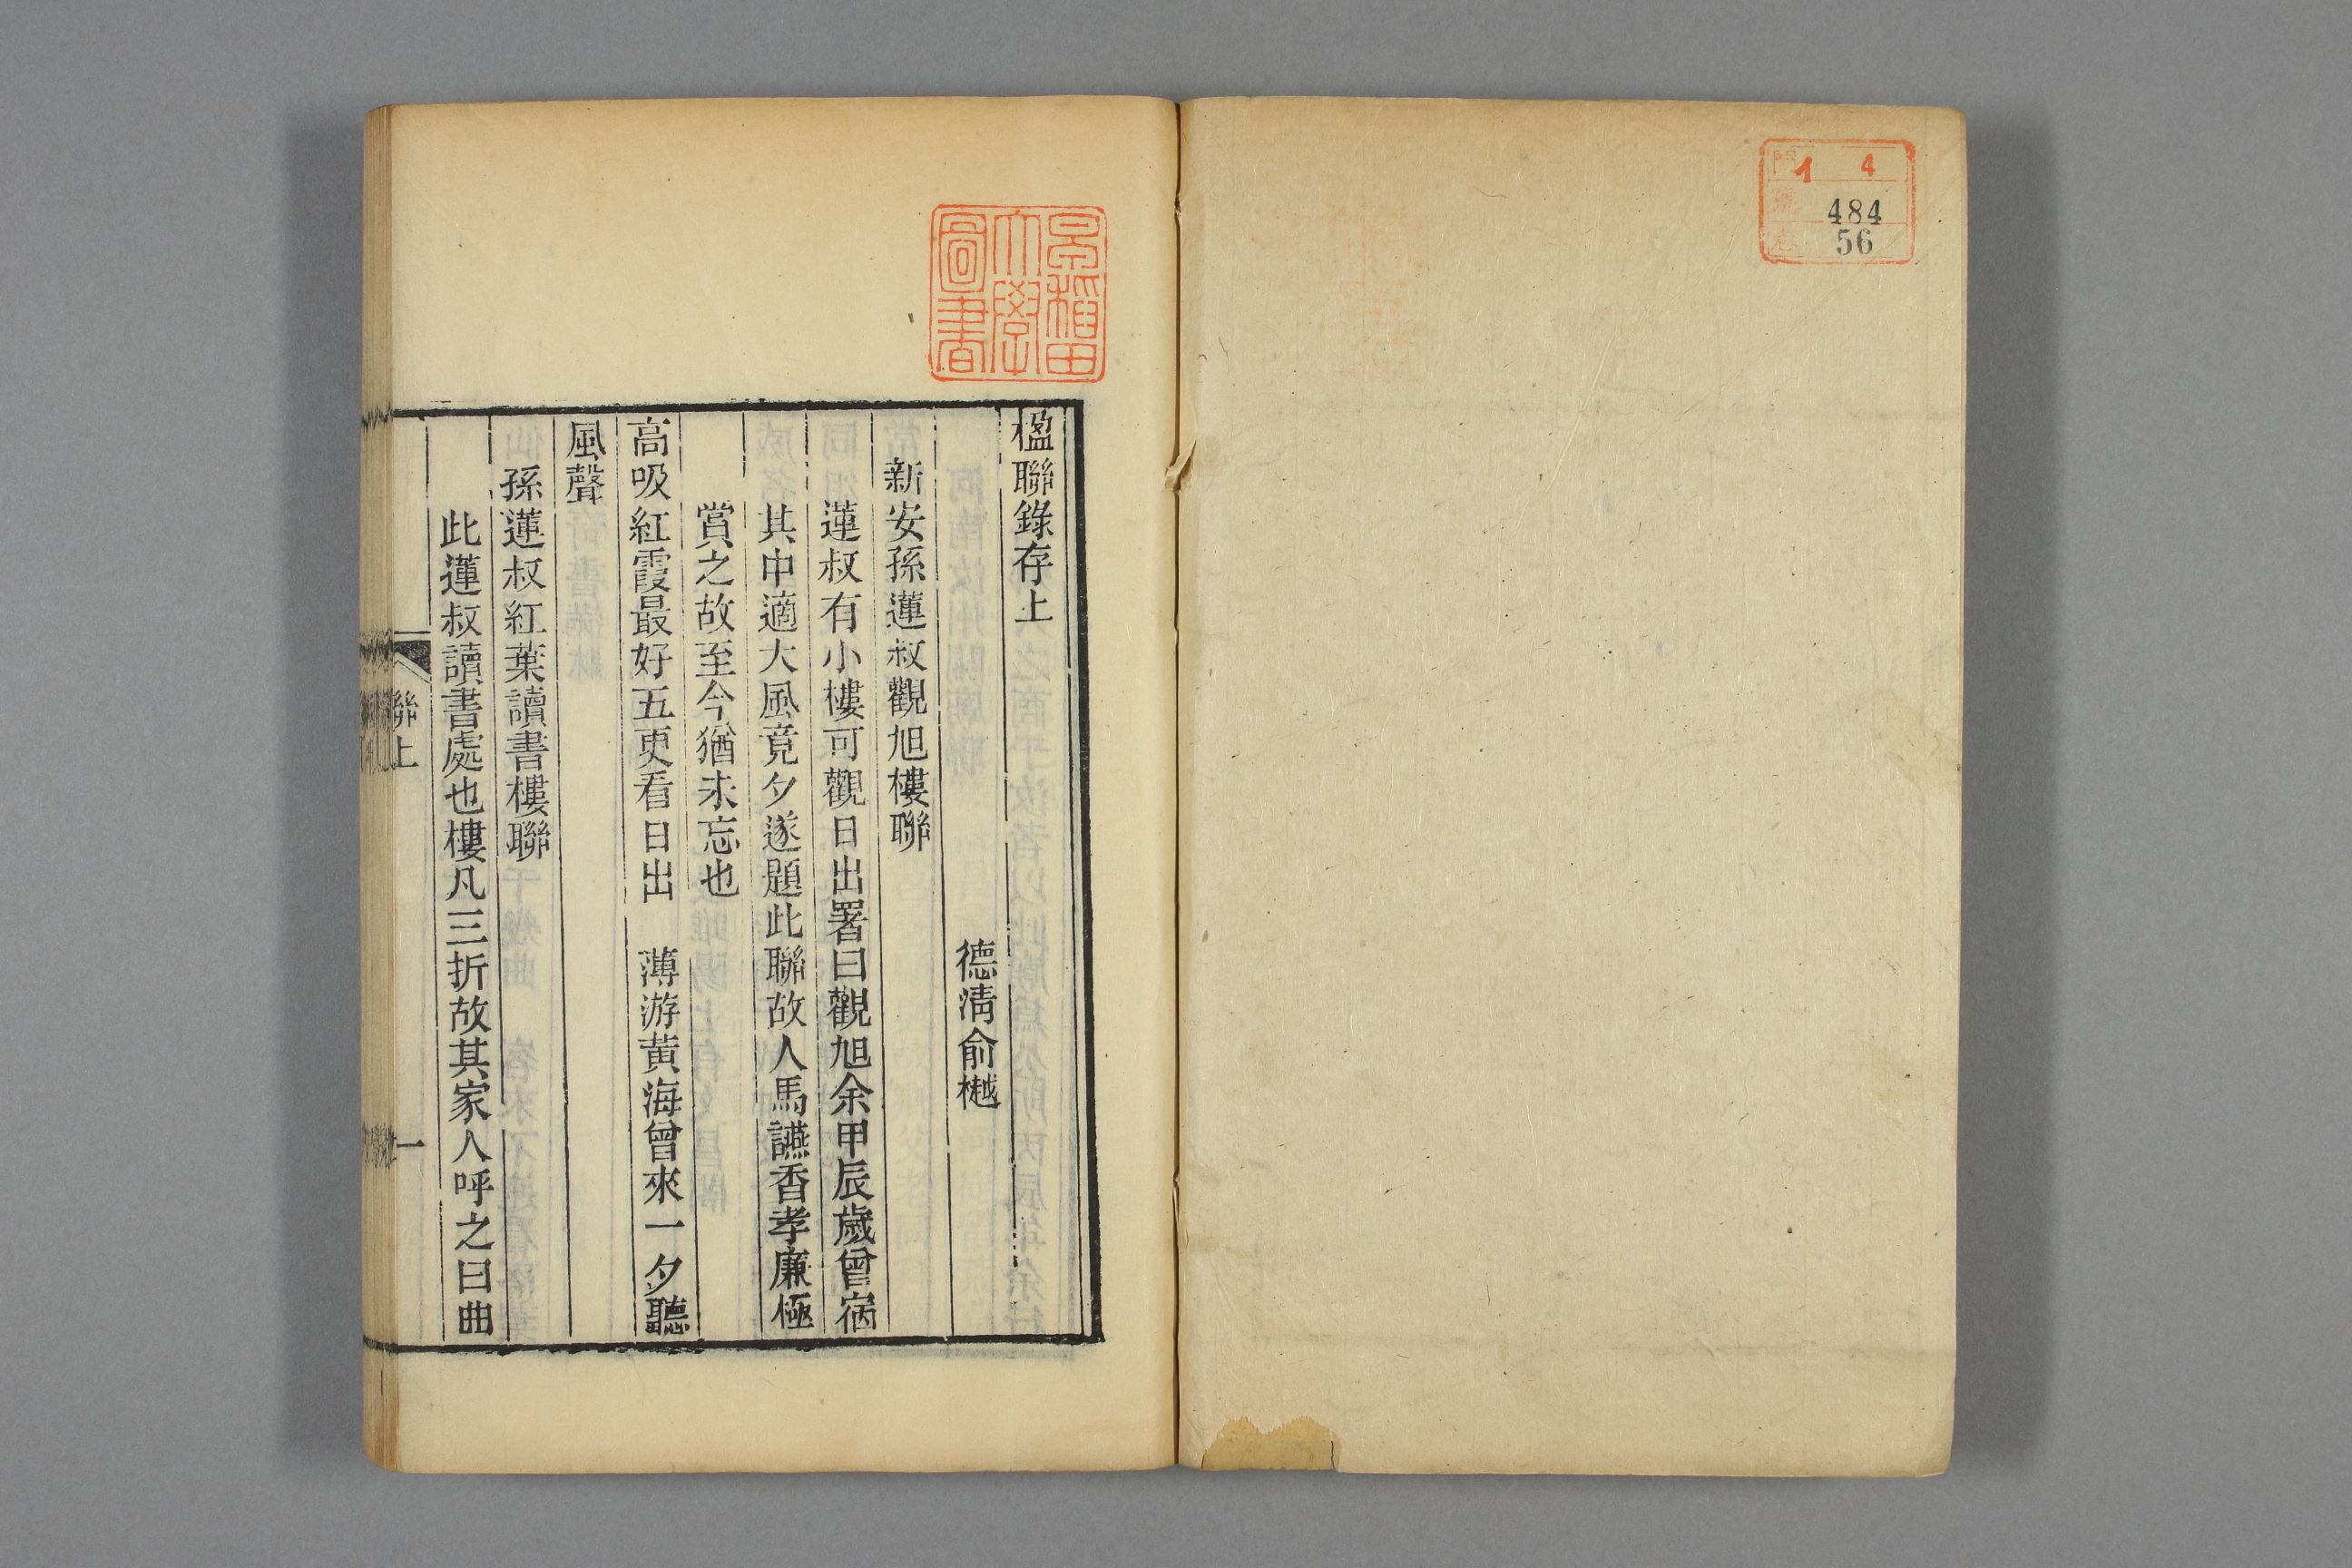 門 1 4
484
56
早稲田大學圖書
楹聯錄存上
德淸俞樾
新安孫蓮叔觀旭樓聯
蓮叔有小樓可觀日出署曰觀旭余甲辰歲曾宿
其中適大風竟夕遂題此聯故人馬讌香孝廉極
賞之故至今猶未忘也
高吸紅霞最好五更看日出 薄游黃海曾來一夕聽
風聲
孫蓮叔紅葉讀書樓聯
此蓮叔讀書處也樓凡三折故其家人呼之曰曲
聯上
一